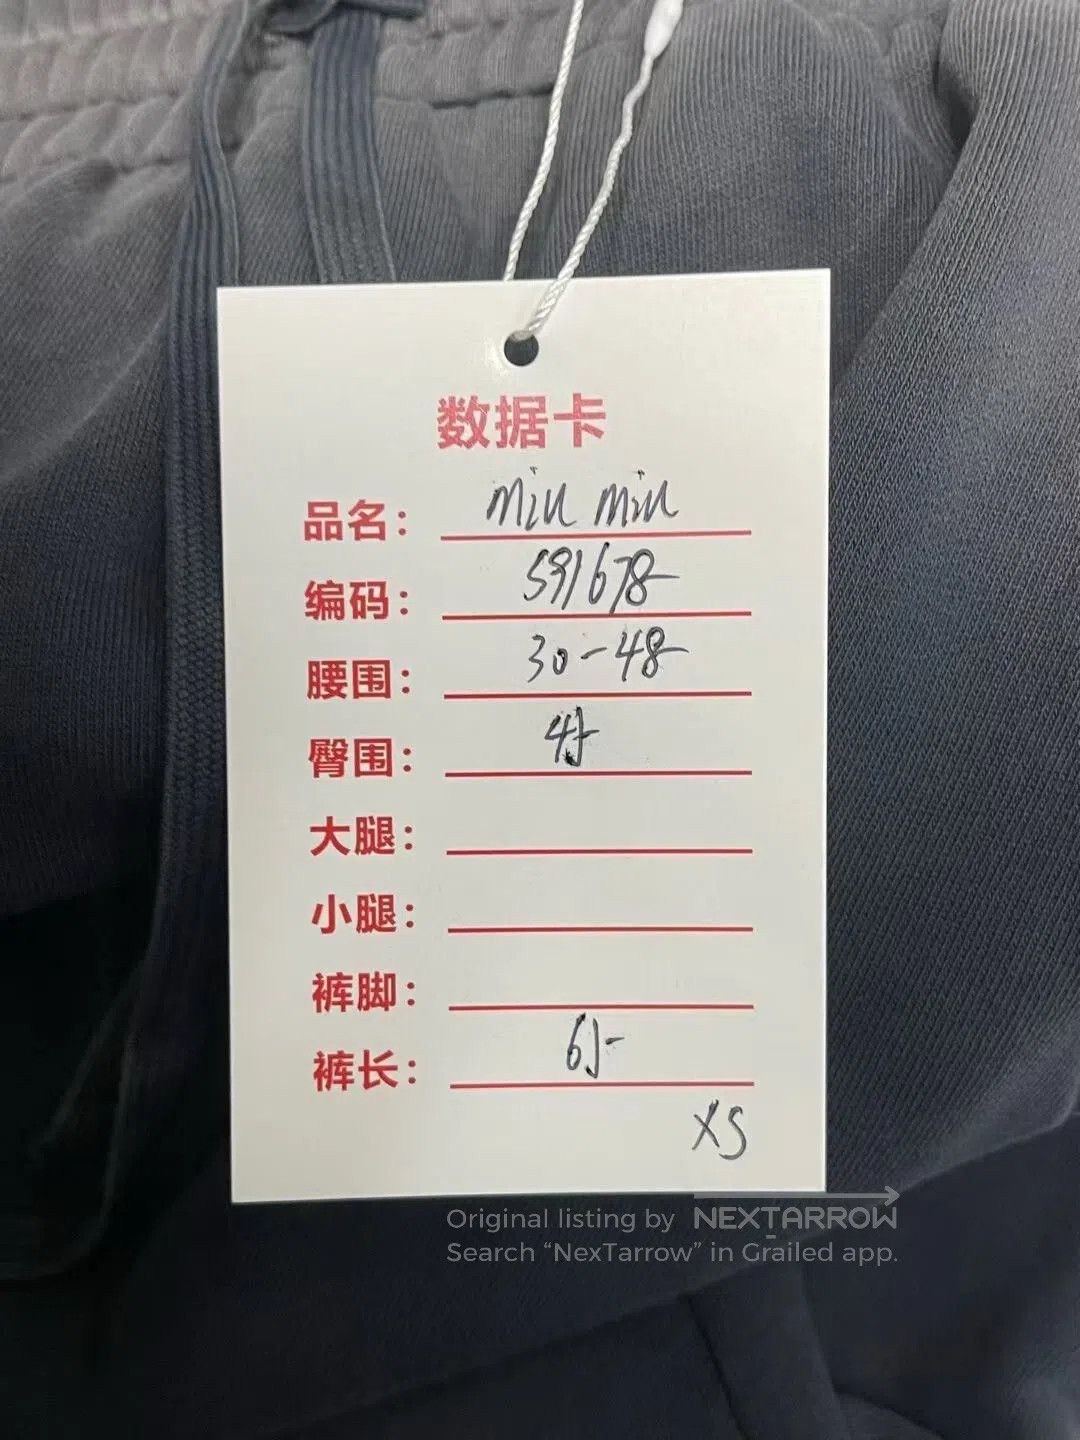 数据卡
品名： miu miu
编码： 591678
腰围： 30-48
臀围：
大腿：
小腿：
裤脚：
裤长：
XS
Original listing by NEXTARROW
Search “NexTarrow” in Grailed app.